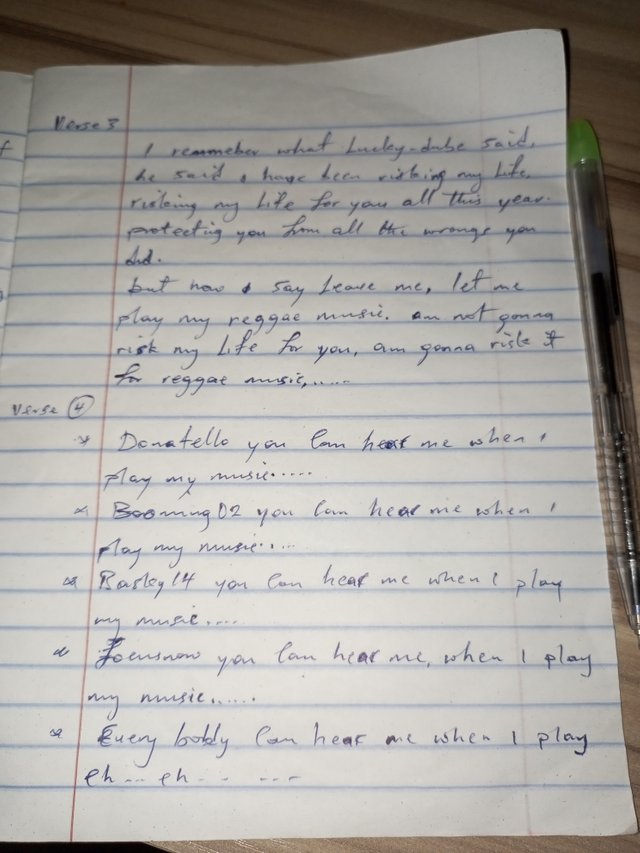 Verse 3
I remmeber what Lucky-dube said,
he said I have been risking my Life,
risking my Life for you all this year.
protecting you from all the wrongs you
did.
but now I say Leave me, let me
play my reggae music. am not gonna
risk my Life for you, am gonna risk it
for reggae music,.....
Verse 4
Donatello you Can hear me when I
play my music.....
Booming02 you Can hear me when I
play my music.....
Basley14 you Can hear me when I play
my music.....
Focusnow you Can hear me, when I play
my music......
Every boddy Can hear me when I play
eh... eh.. ....